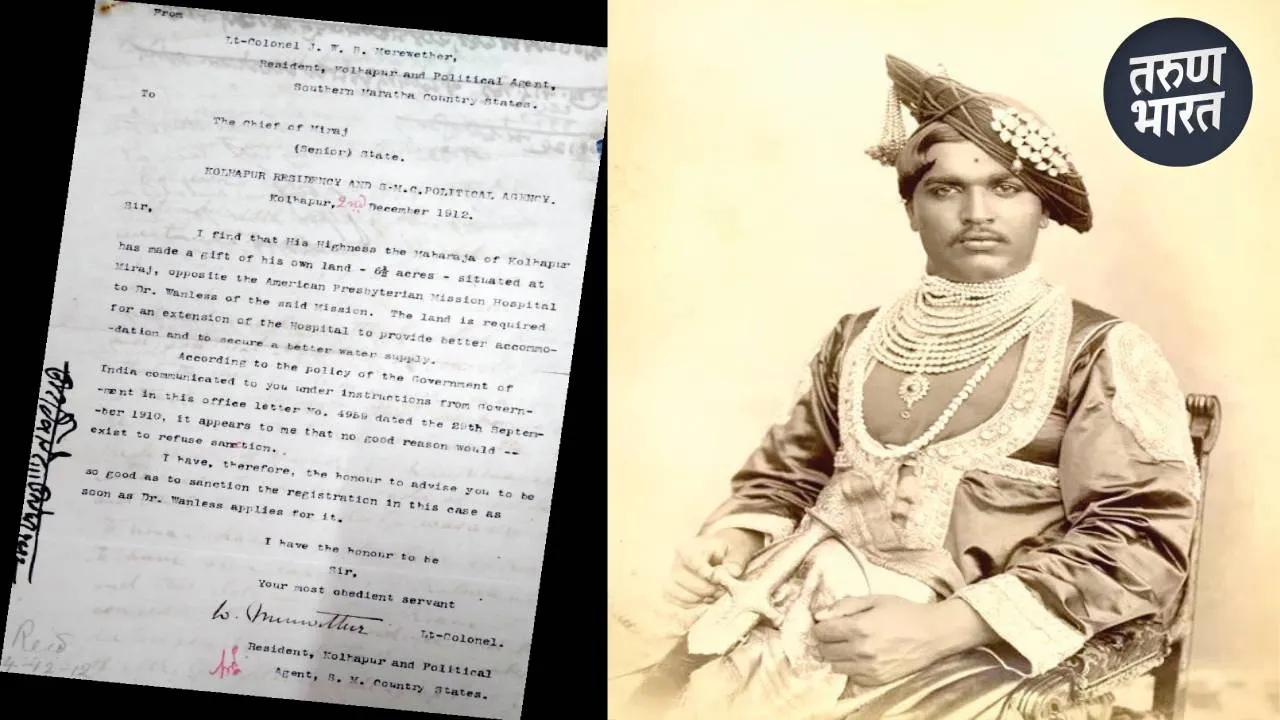 From
Lt-Colonel J. W. B. Merewether,
Resident, Kolhapur and Political Agent,
Southern Maratha Country States.
To
The Chief of Miraj
(Senior) State.
KOLHAPUR RESIDENCY AND S.M.C. POLITICAL AGENCY.
Kolhapur, 2nd December 1912.
Sir,
I find that His Highness the Maharaja of Kolhapur
has made a gift of his own land - 6½ acres - situated at
Miraj, opposite the American Presbyterian Mission Hospital
to Dr. Wanless of the said Mission. The land is required
for an extension of the Hospital to provide better accommo-
-dation and to secure a better water supply.
According to the policy of the Government of
India communicated to you under instructions from Govern-
-ment in this office letter No. 4959 dated the 29th Septem-
-ber 1910, it appears to me that no good reason would --
exist to refuse sanction.
I have, therefore, the honour to advise you to be
so good as to sanction the registration in this case as
soon as Dr. Wanless applies for it.
I have the honour to be
Sir,
Your most obedient servant
W. Merewether Lt-Colonel.
Resident, Kolhapur and Political
Agent, S. M. Country States.
4-12-12
तरुण
भारत